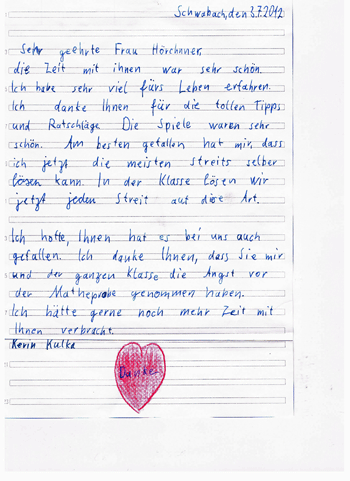 Schwabach, den 3.7.2012
Sehr geehrte Frau Hörchnner,
die Zeit mit ihnen war sehr schön.
Ich habe sehr viel fürs Leben erfahren.
Ich danke Ihnen für die tollen Tipps
und Ratschläge. Die Spiele waren sehr
schön. Am besten gefallen hat mir, dass
ich jetzt die meisten Streits selber
lösen kann. In der Klasse lösen wir
jetzt jeden Streit auf diese Art.
Ich hoffe, Ihnen hat es bei uns auch
gefallen. Ich danke Ihnen, dass Sie mir
und der ganzen Klasse die Angst vor
der Matheprobe genommen haben.
Ich hätte gerne noch mehr Zeit mit
Ihnen verbracht.
Kevin Kulka
Danke